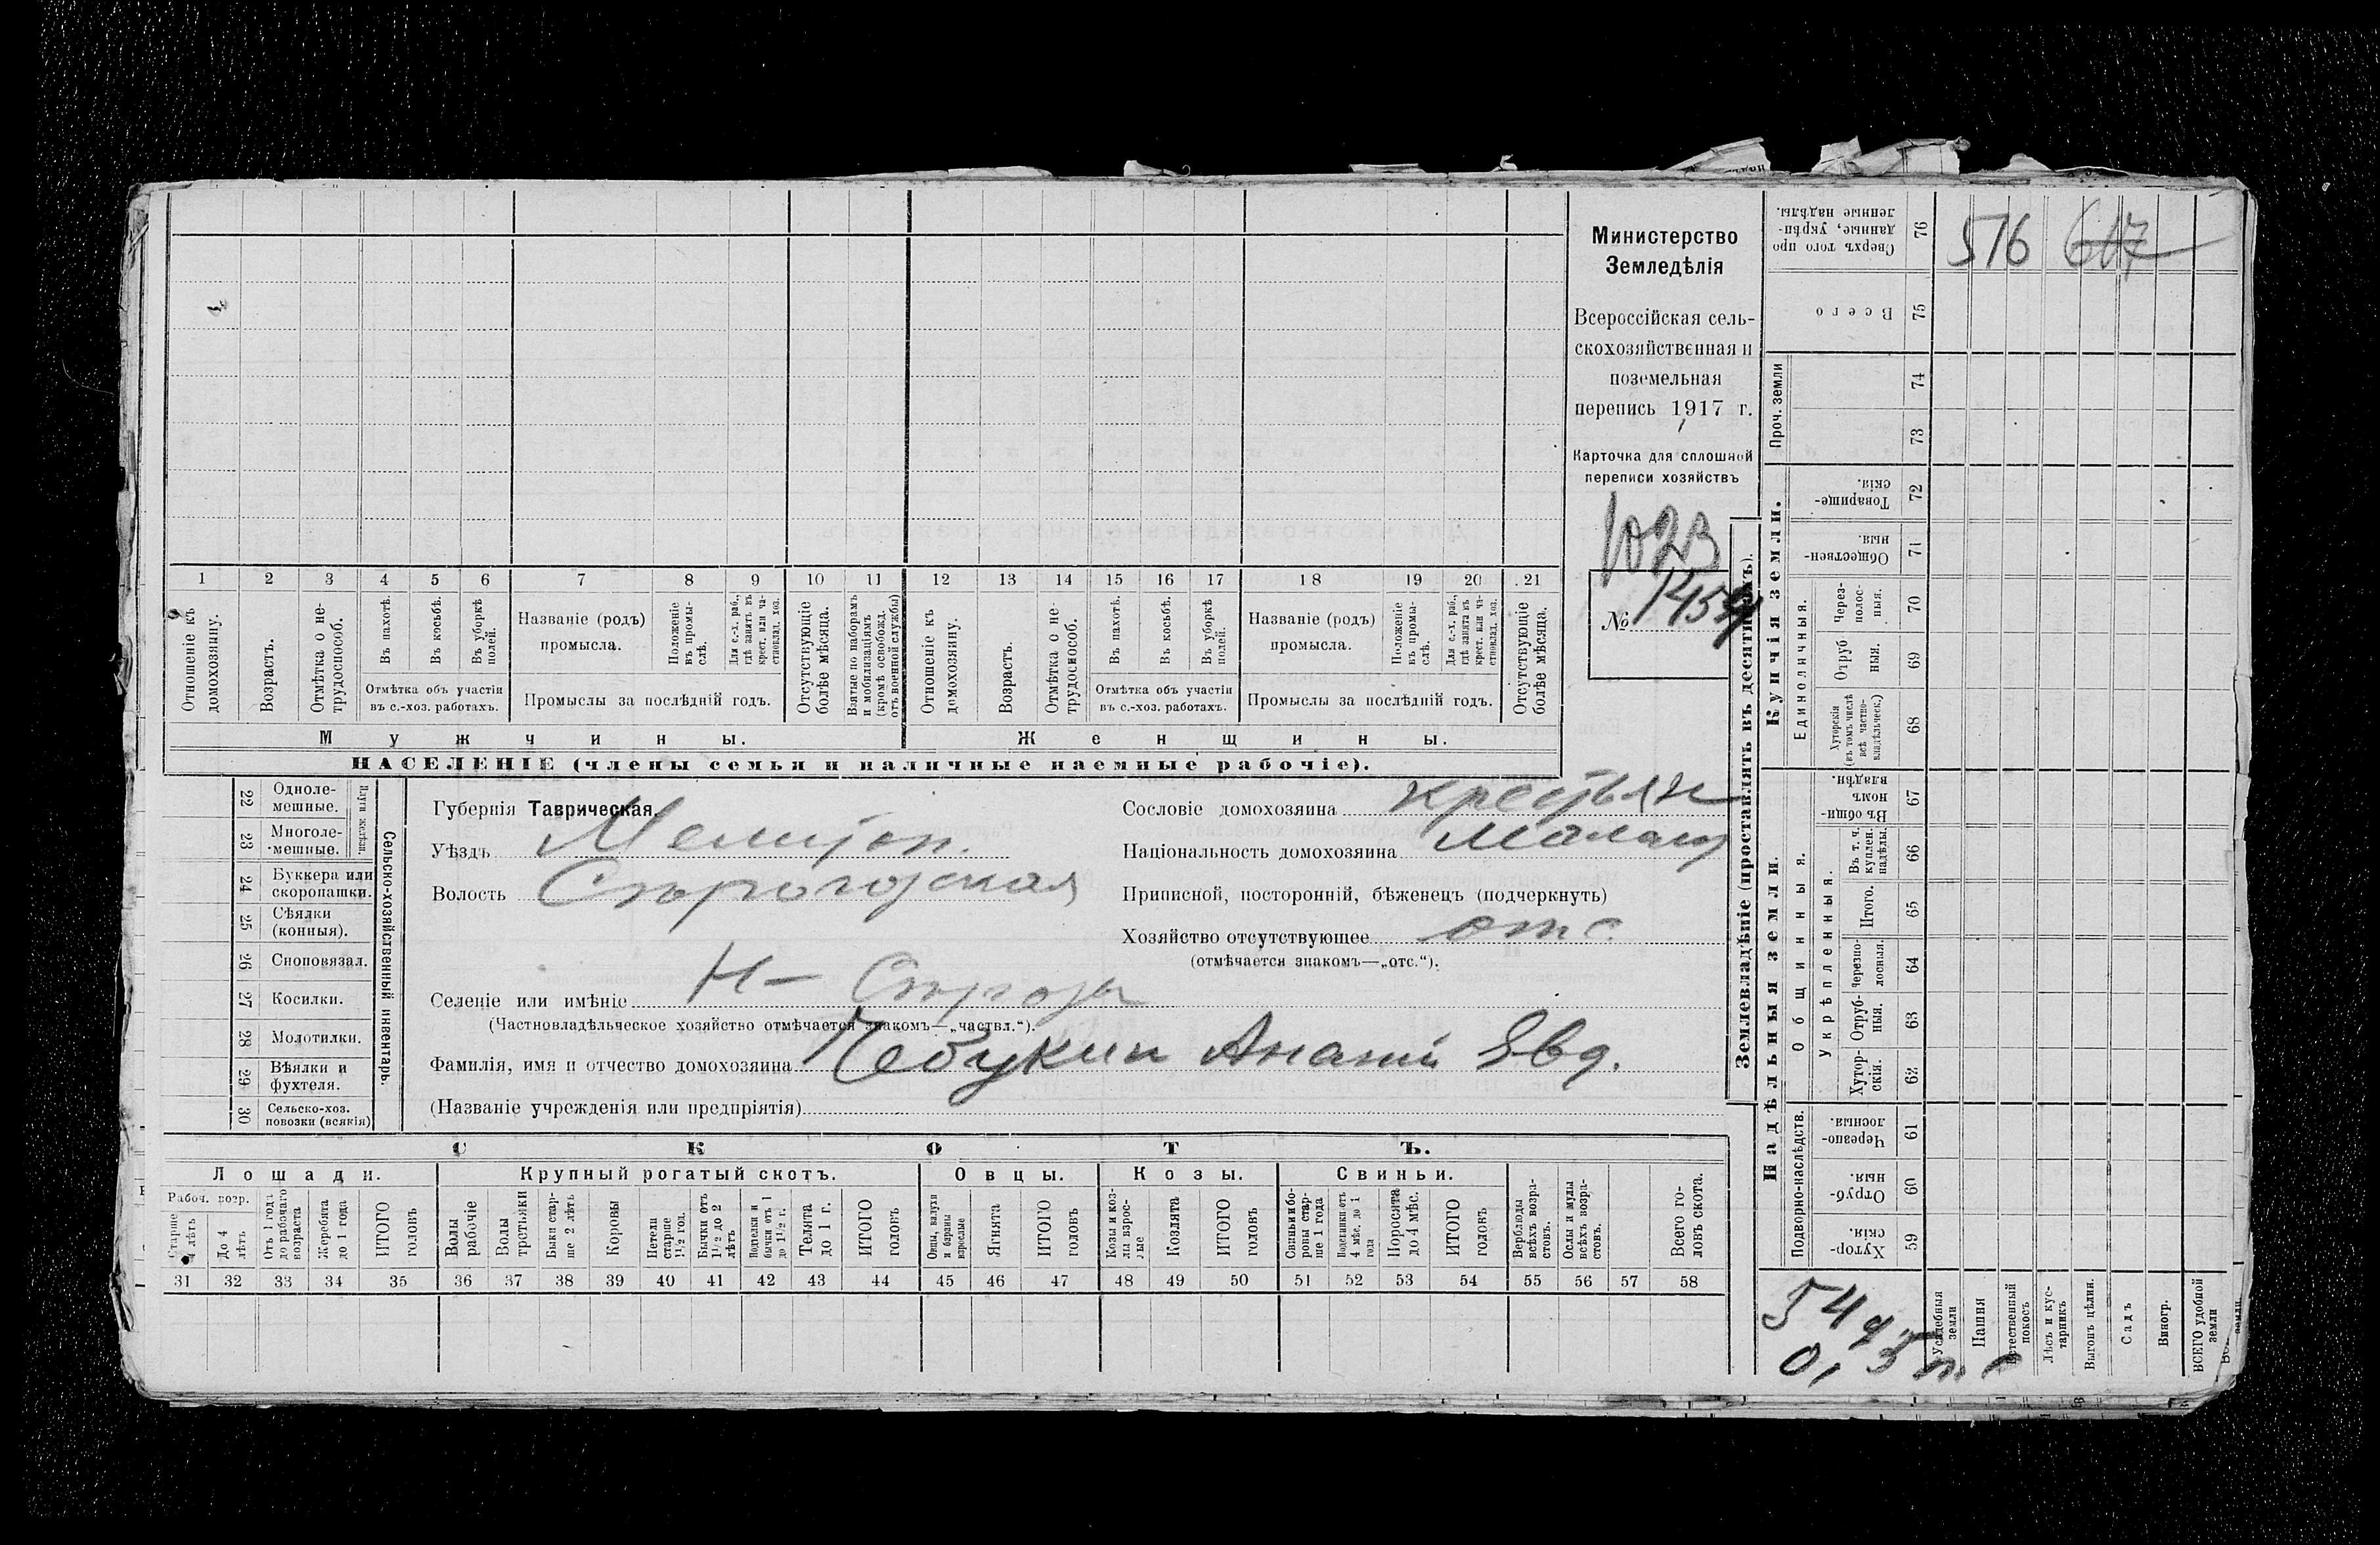 Министерство
Земледѣлія
Всероссійская сель-
скохозяйственная и
поземельная
перепись 1917 г.
Карточка для сплошной
переписи хозяйствъ
1023
№ 1459
1 2 3 4 5 6 7 8 9 10 11 12 13 14 15 16 17 18 19 20 21
Отношеніе къ домохозяину.
Возрастъ.
Отмѣтка о не-трудоспособ.
Въ пахотѣ.
Въ косьбѣ.
Въ уборкѣ полей.
Отмѣтка объ участіи
въ с.-хоз. работахъ.
Названіе (родъ)
промысла.
Положеніе въ промы-слѣ.
Для с.-х. раб., гдѣ занятъ въ крест. или ча-стновлад. хоз.
Промыслы за послѣдній годъ.
Отсутствующіе болѣе мѣсяца.
Взятые по наборамъ и мобилизаціямъ (кромѣ освобожд. отъ военной службы)
Отношеніе къ домохозяину.
Возрастъ.
Отмѣтка о не-трудоспособ.
Въ пахотѣ.
Въ косьбѣ.
Въ уборкѣ полей.
Отмѣтка объ участіи
въ с.-хоз. работахъ.
Названіе (родъ)
промысла.
Положеніе въ промы-слѣ.
Для с.-х. раб., гдѣ занята въ крест. или ча-стновлад. хоз.
Промыслы за послѣдній годъ.
Отсутствующіе болѣе мѣсяца.
Мужчины. Женщины.
НАСЕЛЕНІЕ (члены семьи и наличные наемные рабочіе).
22 Одноле-мешные.
23 Многоле-мешные.
Плуги желѣзн.
24 Буккера или скоропашки.
25 Сѣялки (конныя).
26 Сноповязал.
27 Косилки.
28 Молотилки.
29 Вѣялки и фухтеля.
30 Сельско-хоз. повозки (всякія)
Сельско-хозяйственный инвентарь.
Губернія Таврическая.
Уѣздъ Мелитоп.
Волость Сѣрогозская
Селеніе или имѣніе Н- Сѣрогозы
(Частновладѣльческое хозяйство отмѣчается знакомъ—„частвл.“).
Фамилія, имя и отчество домохозяина Чебукин Ананій Евд.
(Названіе учрежденія или предпріятія)
Сословіе домохозяина крестьян
Національность домохозяина малор
Приписной, посторонній, бѣженецъ (подчеркнуть)
Хозяйство отсутствующее отс.
(отмѣчается знакомъ—„отс.“).
СКОТЪ.
Лошади. Крупный рогатый скотъ. Овцы. Козы. Свиньи.
Рабоч. возр.
Старше 4 лѣтъ
До 4 лѣтъ
Отъ 1 года до рабочаго возраста
Жеребята до 1 года
ИТОГО головъ
Волы рабочіе
Волы третьяки
Быки стар-ше 2 лѣтъ
Коровы
Нетели старше 1½ год.
Бычки отъ 1½ до 2 лѣтъ
Нетелки и бычки отъ 1 до 1½ г.
Телята до 1 г.
ИТОГО головъ
Овцы, валухи и бараны взрослые
Ягнята
ИТОГО головъ
Козы и коз-лы взрос-лые
Козлята
ИТОГО головъ
Свиньи и бо-ровы стар-ше 1 года
Подсвинки отъ 4 мѣс. до 1 года
Поросята до 4 мѣс.
ИТОГО головъ
Верблюды всѣхъ возра-стовъ.
Ослы и мулы всѣхъ возра-стовъ.
Всего го-ловъ скота.
31 32 33 34 35 36 37 38 39 40 41 42 43 44 45 46 47 48 49 50 51 52 53 54 55 56 57 58
Землевладѣніе (проставлять въ десятинахъ).
Купчія земли.
Надѣльныя земли.
Сверхъ того про-данные, укрѣп-ленные надѣлы. 76
516 617
Всего 75
Проч. земли 74
73
Товарище-скія. 72
Обществен-ныя. 71
Единоличныя.
Через-полос-ныя. 70
Отруб-ныя. 69
Хуторскія (въ томъ числѣ всѣ частно-владѣльческ.) 68
Общинныя.
Въ общи-номъ владѣн. 67
Укрѣпленныя.
Въ т. ч. куплен. надѣлы. 66
Итого. 65
Черезпо-лосныя. 64
Отруб-ныя. 63
Хутор-скія. 62
Подворно-наслѣдств.
Черезпо-лосныя. 61
Отруб-ныя. 60
Хутор-скія. 59
54
Усадебныя земли
Пашня
Естественный покосъ
Лѣсъ и кус-тарникъ
Выгонъ цѣлин.
Садъ
Виногр.
ВСЕГО удобной земли